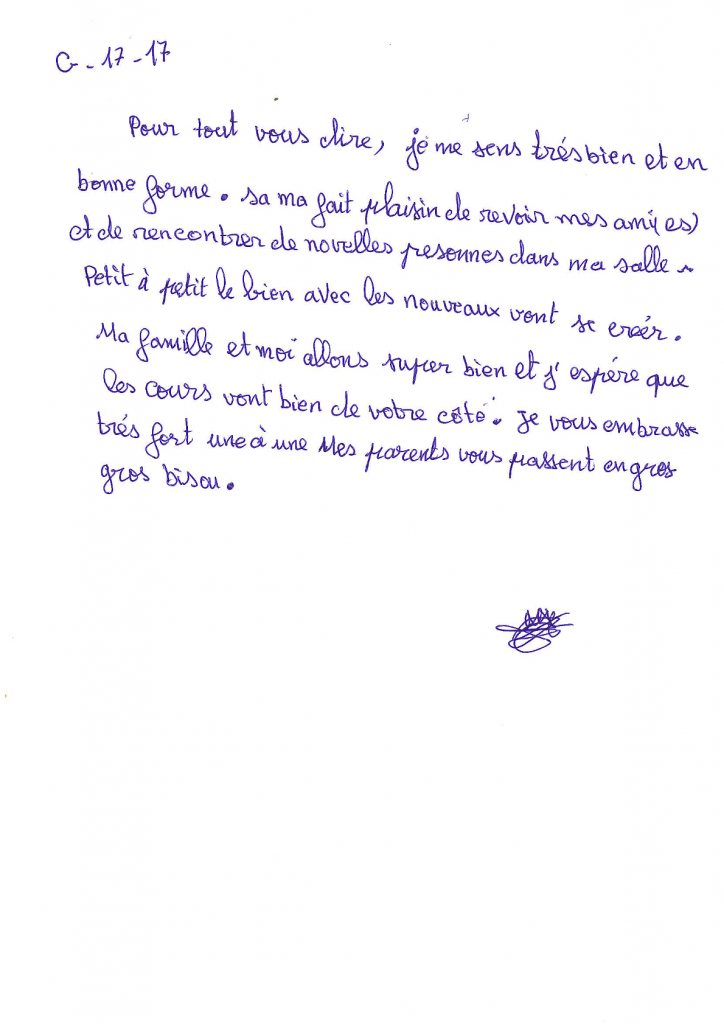 G-17-17
Pour tout vous dire, je me sens trés bien et en
bonne forme. sa ma fait plaisin de revoir mes ami(es)
et de rencontrer de novelles presonnes dans ma salle.
Petit à petit le bien avec les nouveaux vont se créér.
Ma famille et moi allons super bien et j'espére que
les cours vont bien de votre côté. Je vous embrasse
trés fort une à une Mes parents vous passent en gros
gros bisou.